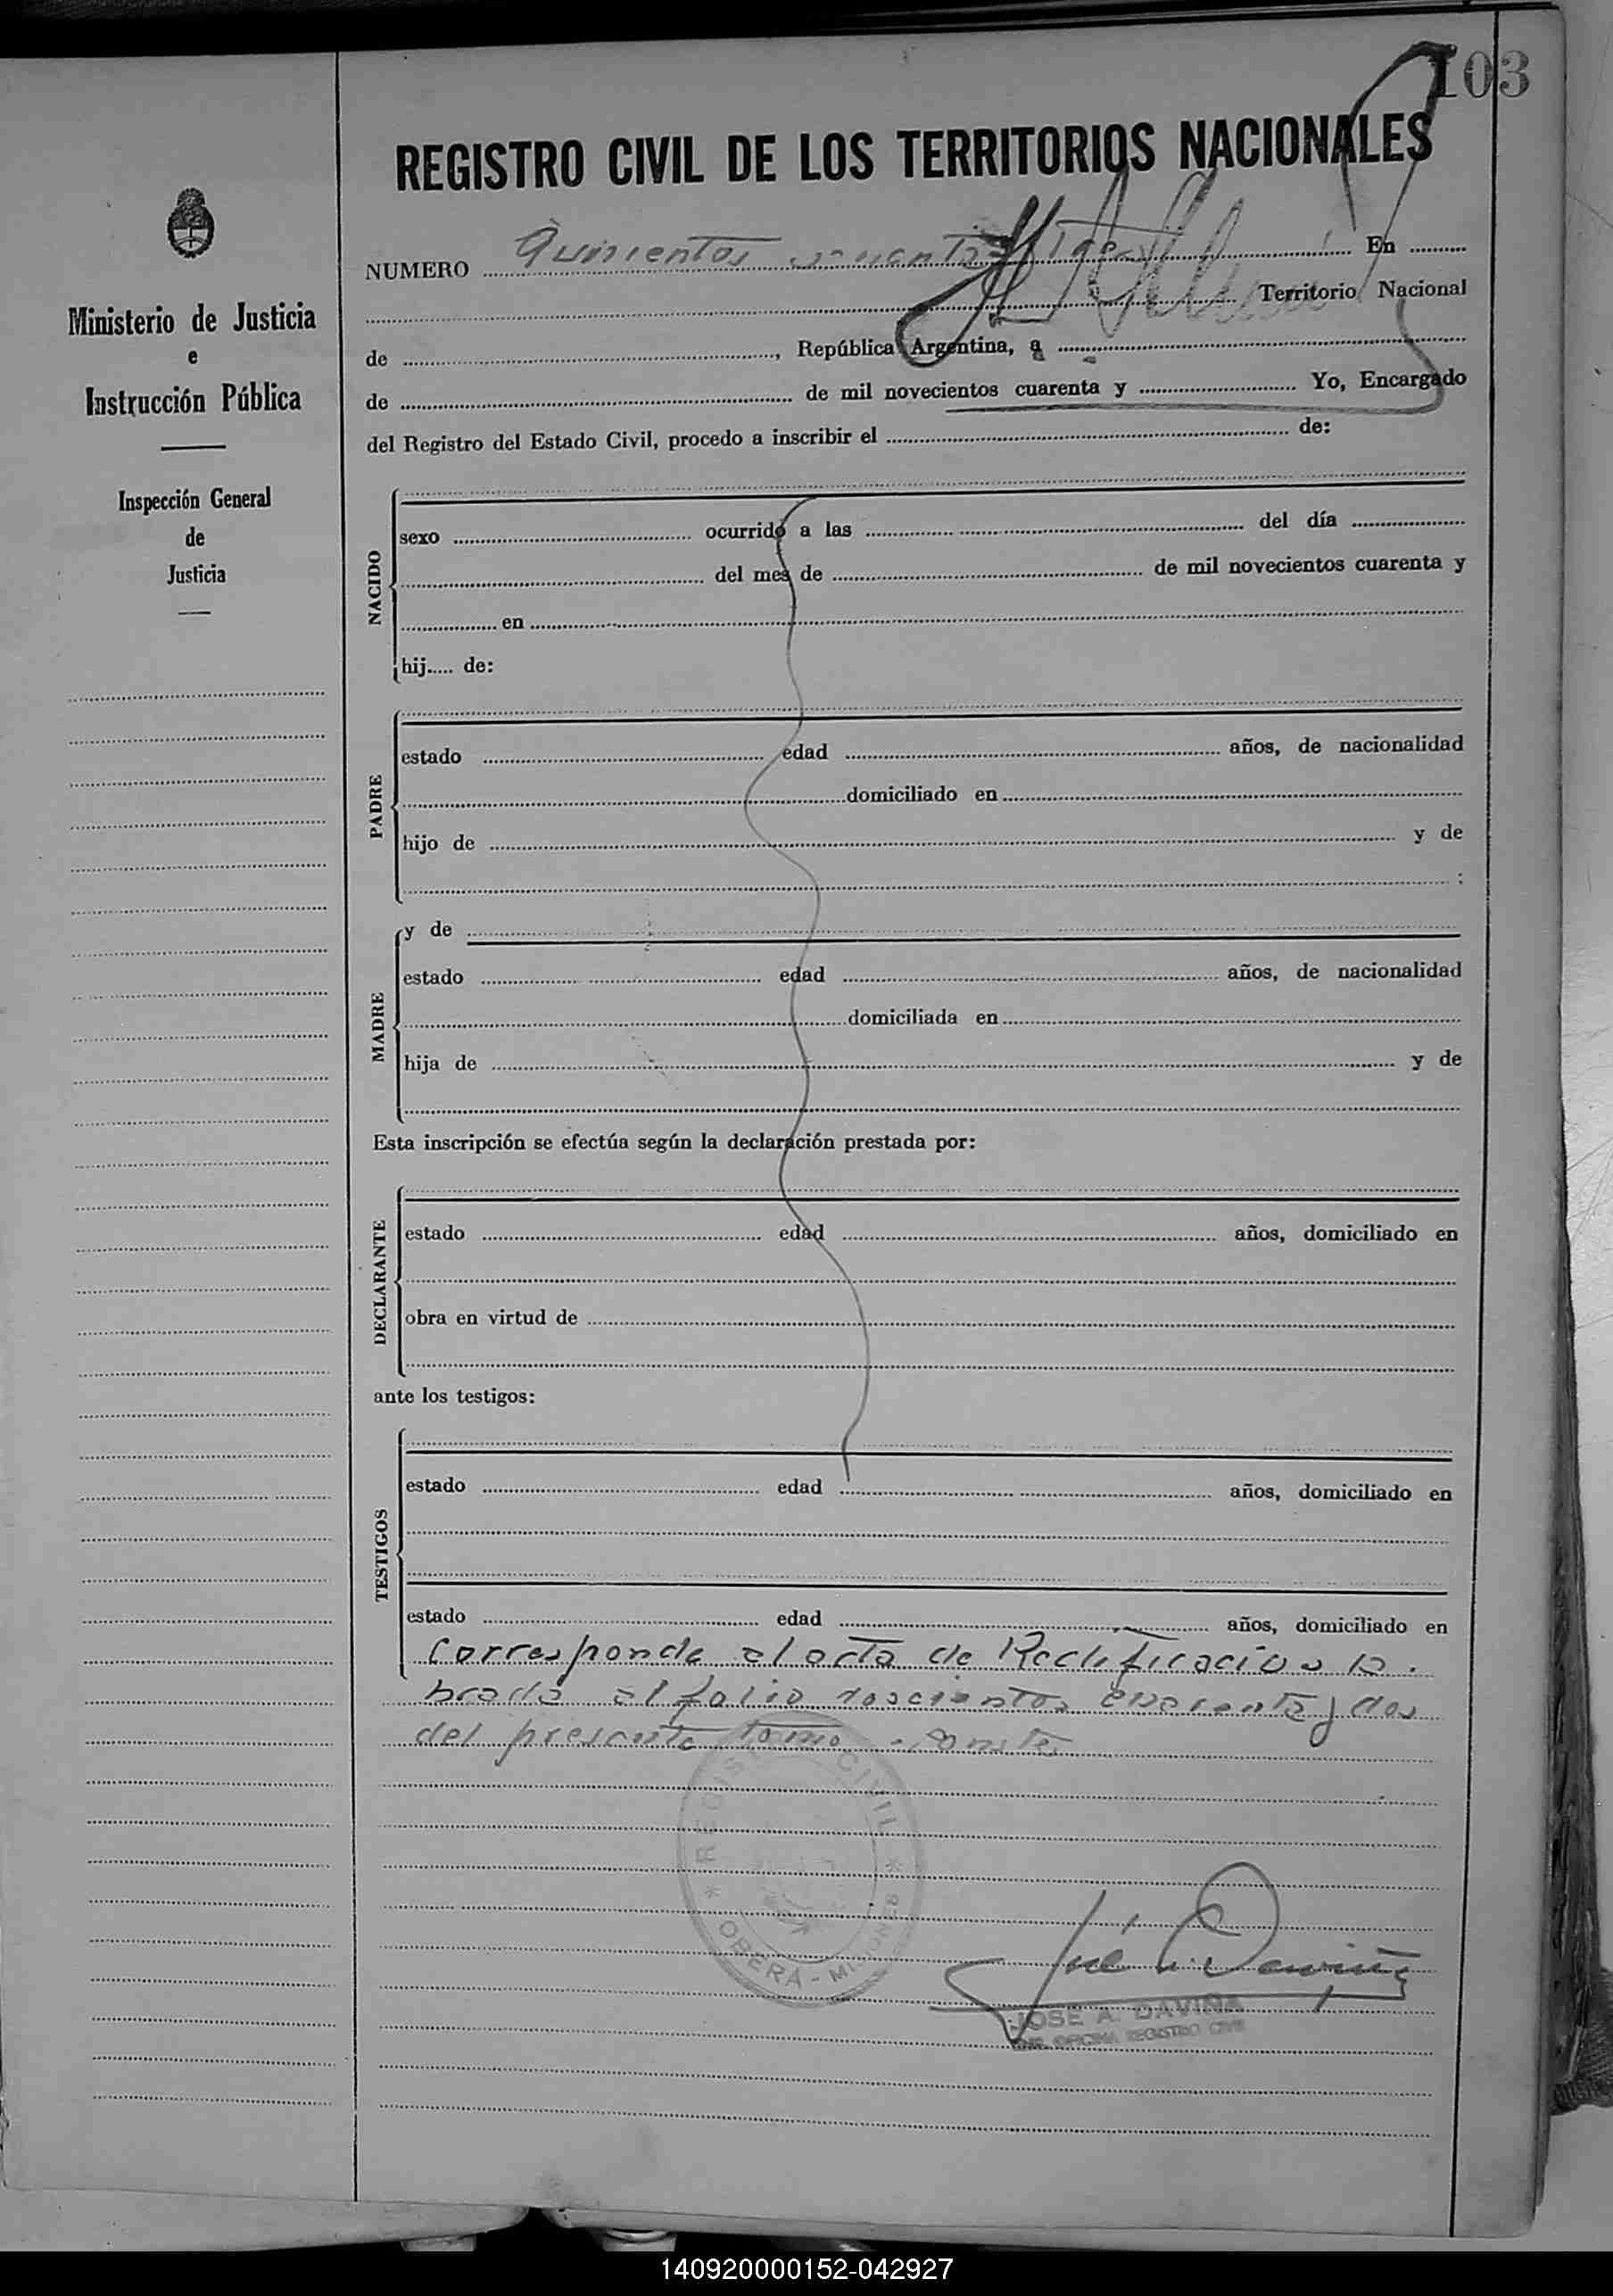 103
REGISTRO CIVIL DE LOS TERRITORIOS NACIONALES
NUMERO Quinientos En
Territorio Nacional
de , República Argentina, a
de de mil novecientos cuarenta y Yo, Encargado
del Registro del Estado Civil, procedo a inscribir el de:
Ministerio de Justicia
e
Instrucción Pública
Inspección General
de
Justicia
NACIDO
sexo ocurrido a las del día
del mes de de mil novecientos cuarenta y
en
hij..... de:
PADRE
estado edad años, de nacionalidad
domiciliado en
hijo de y de
;
MADRE
y de
estado edad años, de nacionalidad
domiciliada en
hija de y de
Esta inscripción se efectúa según la declaración prestada por:
DECLARANTE
estado edad años, domiciliado en
obra en virtud de
ante los testigos:
TESTIGOS
estado edad años, domiciliado en
estado edad años, domiciliado en
Corresponde al acta de Rectificación la
brada al folio doscientos cuarenta y dos
del presente tomo. Conste
REGISTRO CIVIL * OBERÁ - MISIONES *
JOSE A. DAVIÑA
OFICINA REGISTRO CIVIL
140920000152-042927